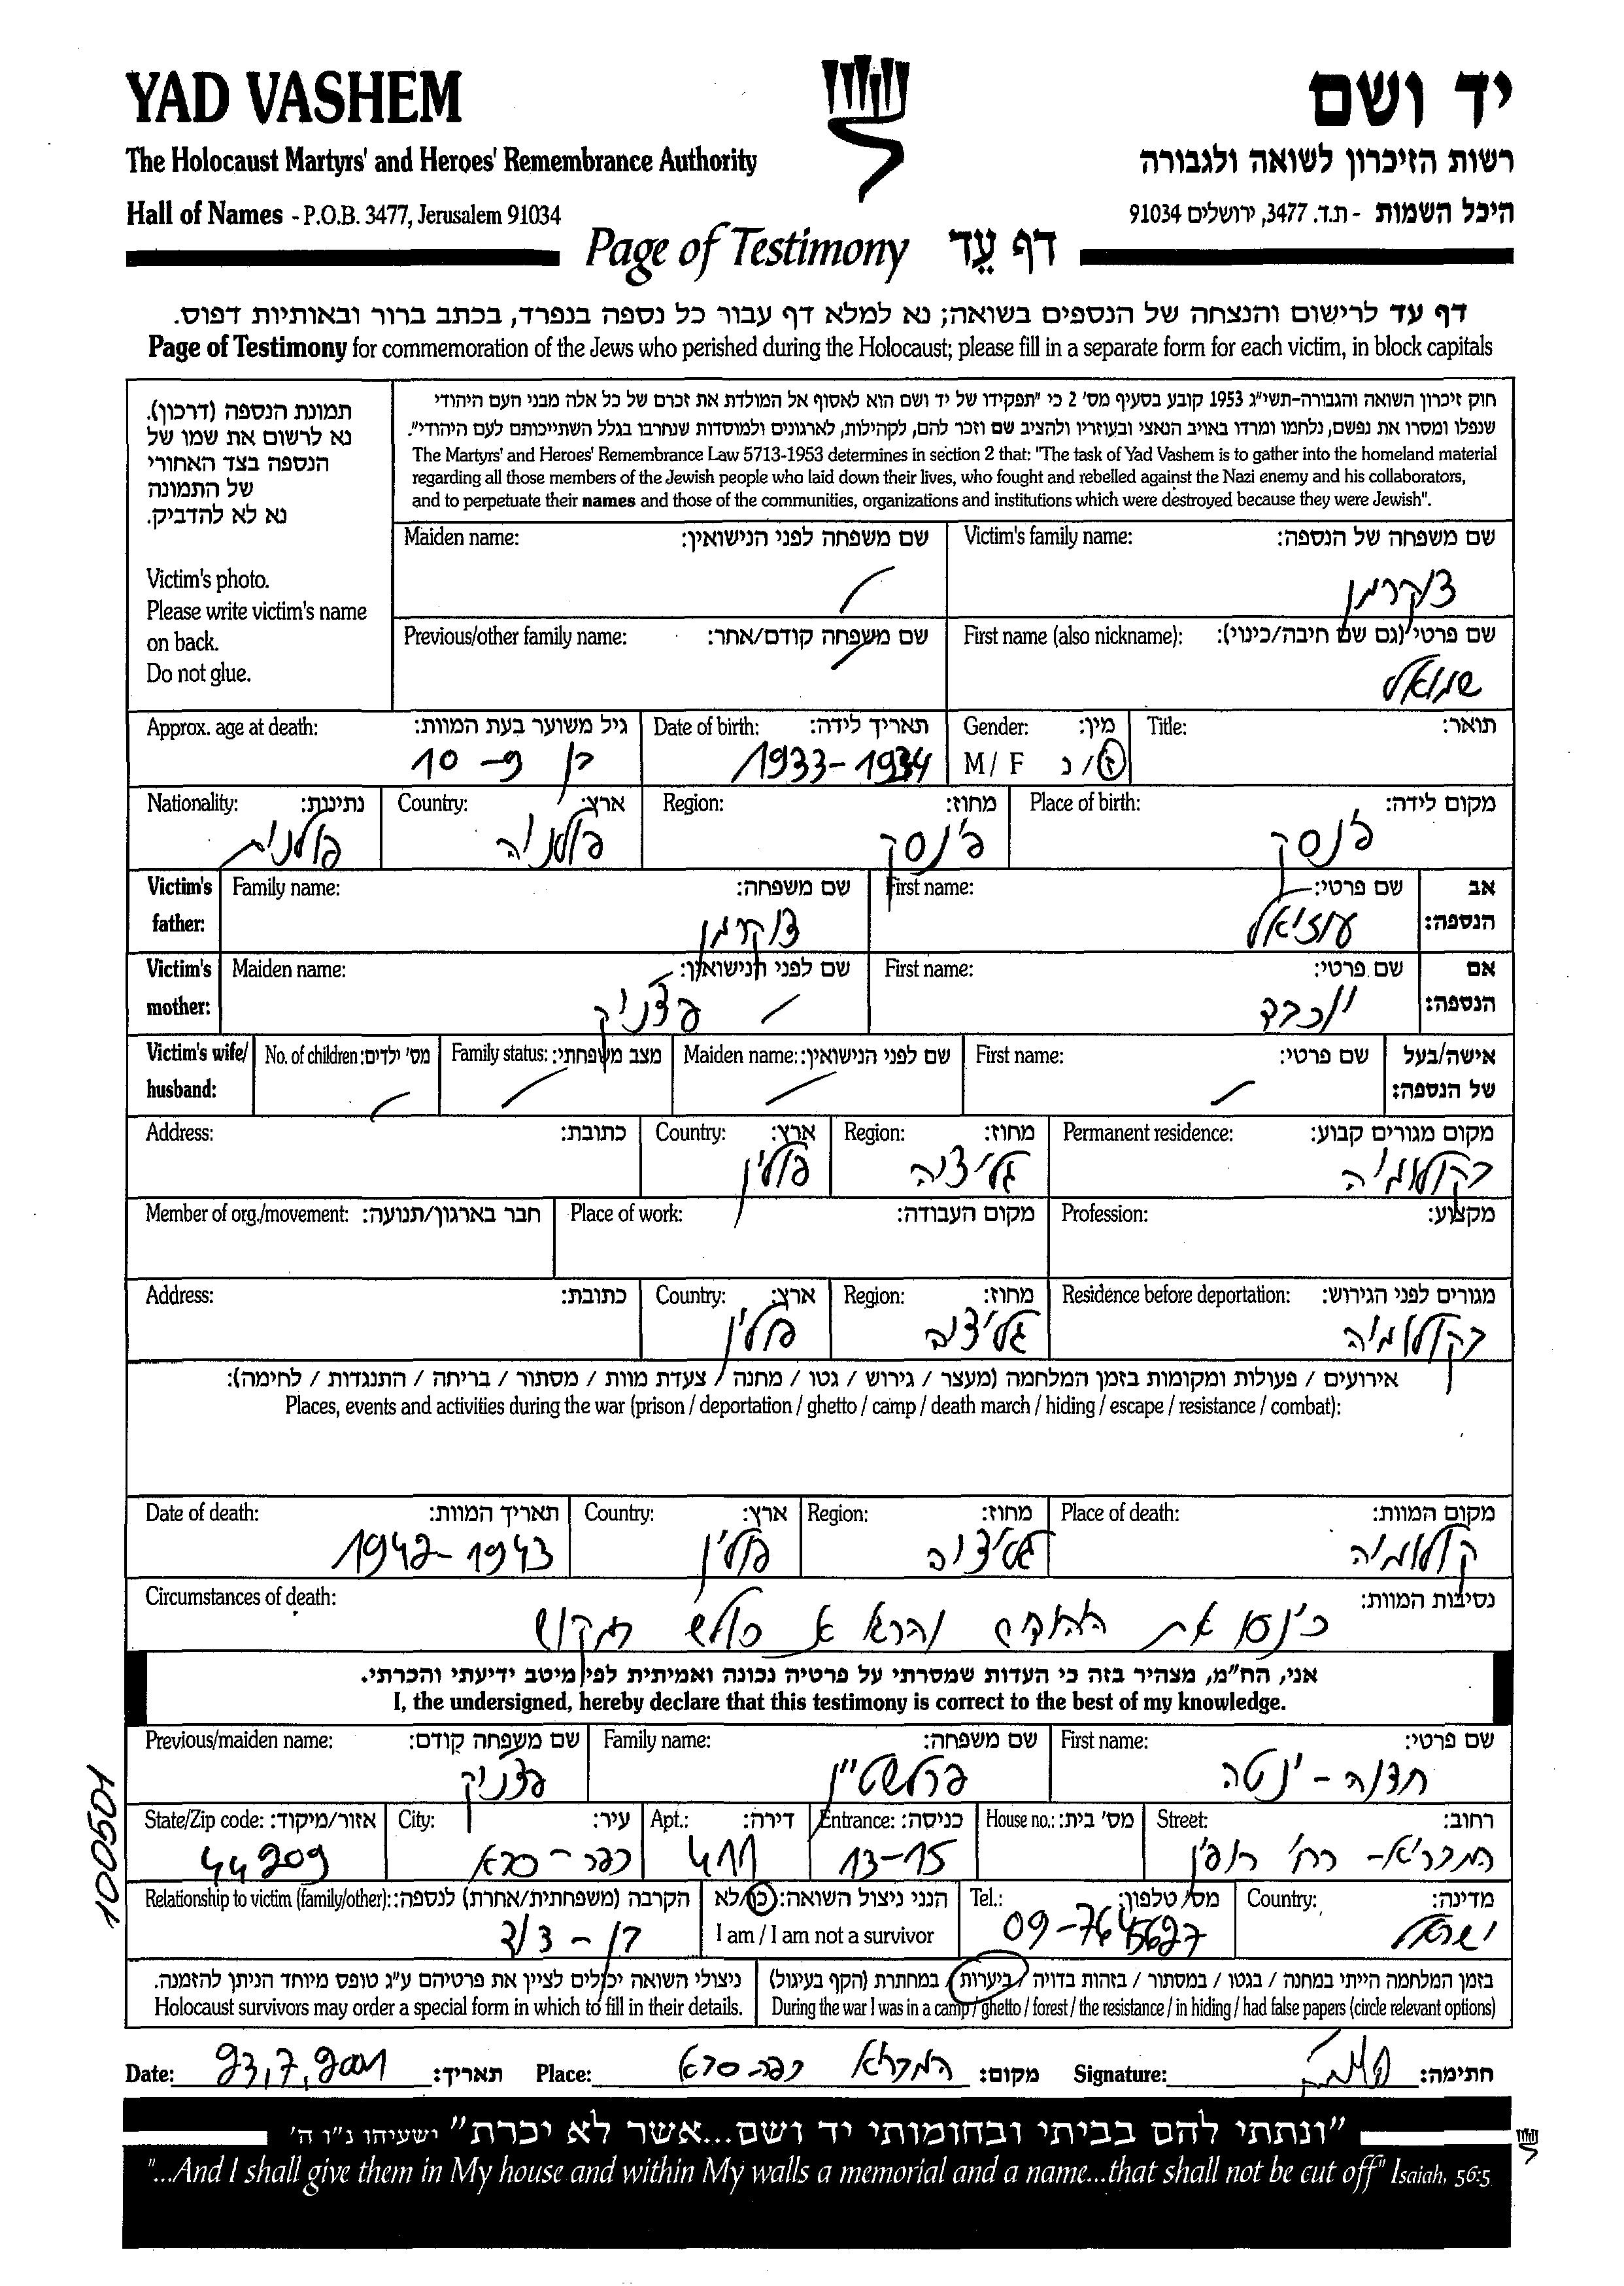 YAD VASHEM
יד ושם
The Holocaust Martyrs' and Heroes' Remembrance Authority
רשות הזיכרון לשואה ולגבורה
Hall of Names - P.O.B. 3477, Jerusalem 91034
היכל השמות - ת.ד. 3477, ירושלים 91034
Page of Testimony דף עֵד
דף עד לרישום והנצחה של הנספים בשואה; נא למלא דף עבור כל נספה בנפרד, בכתב ברור ובאותיות דפוס.
Page of Testimony for commemoration of the Jews who perished during the Holocaust; please fill in a separate form for each victim, in block capitals
תמונת הנספה (דרכון).
נא לרשום את שמו של
הנספה בצד האחורי
של התמונה
נא לא להדביק.
Victim's photo.
Please write victim's name
on back.
Do not glue.
חוק זיכרון השואה והגבורה-תשי"ג 1953 קובע בסעיף מס' 2 כי "תפקידו של יד ושם הוא לאסוף אל המולדת את זכרם של כל אלה מבני העם היהודי
שנפלו ומסרו את נפשם, נלחמו ומרדו באויב הנאצי ובעוזריו ולהציב שם וזכר להם, לקהילות, לארגונים ולמוסדות שנחרבו בגלל השתייכותם לעם היהודי".
The Martyrs' and Heroes' Remembrance Law 5713-1953 determines in section 2 that: "The task of Yad Vashem is to gather into the homeland material
regarding all those members of the Jewish people who laid down their lives, who fought and rebelled against the Nazi enemy and his collaborators,
and to perpetuate their names and those of the communities, organizations and institutions which were destroyed because they were Jewish".
Victim's family name: שם משפחה של הנספה:
צוקרמן
Maiden name: שם משפחה לפני הנישואין:
First name (also nickname): שם פרטי (גם שם חיבה/כינוי):
שמואל
Previous/other family name: שם משפחה קודם/אחר:
Title: תואר:
Gender: מין:
M / F ז / נ
Date of birth: תאריך לידה:
1933-1934
Approx. age at death: גיל משוער בעת המוות:
בן 9-10
Place of birth: מקום לידה:
פינסק
Region: מחוז:
פינסק
Country: ארץ:
פולניה
Nationality: נתינות:
פולנית
Victim's father: אב הנספה:
First name: שם פרטי:
עוזיאל
Family name: שם משפחה:
צוקרמן
Victim's mother: אם הנספה:
First name: שם פרטי:
יוכבד
Maiden name: שם לפני הנישואין:
פצניק
Victim's wife/husband: אישה/בעל של הנספה:
First name: שם פרטי:
Maiden name: שם לפני הנישואין:
Family status: מצב משפחתי:
No. of children: מס' ילדים:
Permanent residence: מקום מגורים קבוע:
בקולומיה
Region: מחוז:
גליציה
Country: ארץ:
פולין
Address: כתובת:
Profession: מקצוע:
Place of work: מקום העבודה:
Member of org./movement: חבר בארגון/תנועה:
Residence before deportation: מגורים לפני הגירוש:
בקולומיה
Region: מחוז:
גליציה
Country: ארץ:
פולין
Address: כתובת:
אירועים / פעולות ומקומות בזמן המלחמה (מעצר / גירוש / גטו / מחנה / צעדת מוות / מסתור / בריחה / התנגדות / לחימה):
Places, events and activities during the war (prison / deportation / ghetto / camp / death march / hiding / escape / resistance / combat):
Place of death: מקום המוות:
קולומיה
Region: מחוז:
גליציה
Country: ארץ:
פולין
Date of death: תאריך המוות:
1942-1943
Circumstances of death: נסיבות המוות:
כינסו את
אני, הח"מ, מצהיר בזה כי העדות שמסרתי על פרטיה נכונה ואמיתית לפי מיטב ידיעתי והכרתי.
I, the undersigned, hereby declare that this testimony is correct to the best of my knowledge.
First name: שם פרטי:
חדוה - ינטה
Family name: שם משפחה:
פרלשטיין
Previous/maiden name: שם משפחה קודם:
פצניק
Street: רחוב:
House no.: מס' בית:
Entrance: כניסה:
13-15
Apt.: דירה:
411
City: עיר:
כפר-סבא
State/Zip code: אזור/מיקוד:
44209
Country: מדינה:
ישראל
Tel.: מס' טלפון:
09-7645627
הנני ניצול השואה: כן/לא
I am / I am not a survivor
Relationship to victim (family/other): הקרבה (משפחתית/אחרת) לנספה:
בן - דוד
בזמן המלחמה הייתי במחנה / בגטו / במסתור / בזהות בדויה / ביערות / במחתרת (הקף בעיגול)
During the war I was in a camp / ghetto / forest / the resistance / in hiding / had false papers (circle relevant options)
ניצולי השואה יכולים לציין את פרטיהם ע"ג טופס מיוחד הניתן להזמנה.
Holocaust survivors may order a special form in which to fill in their details.
Date: 23,7,2001 תאריך:
Place: כפר-סבא מקום:
Signature: חתימה:
"ונתתי להם בביתי ובחומותי יד ושם...אשר לא יכרת" ישעיהו נ"ו ה'
"...And I shall give them in My house and within My walls a memorial and a name...that shall not be cut off" Isaiah, 56:5
100501